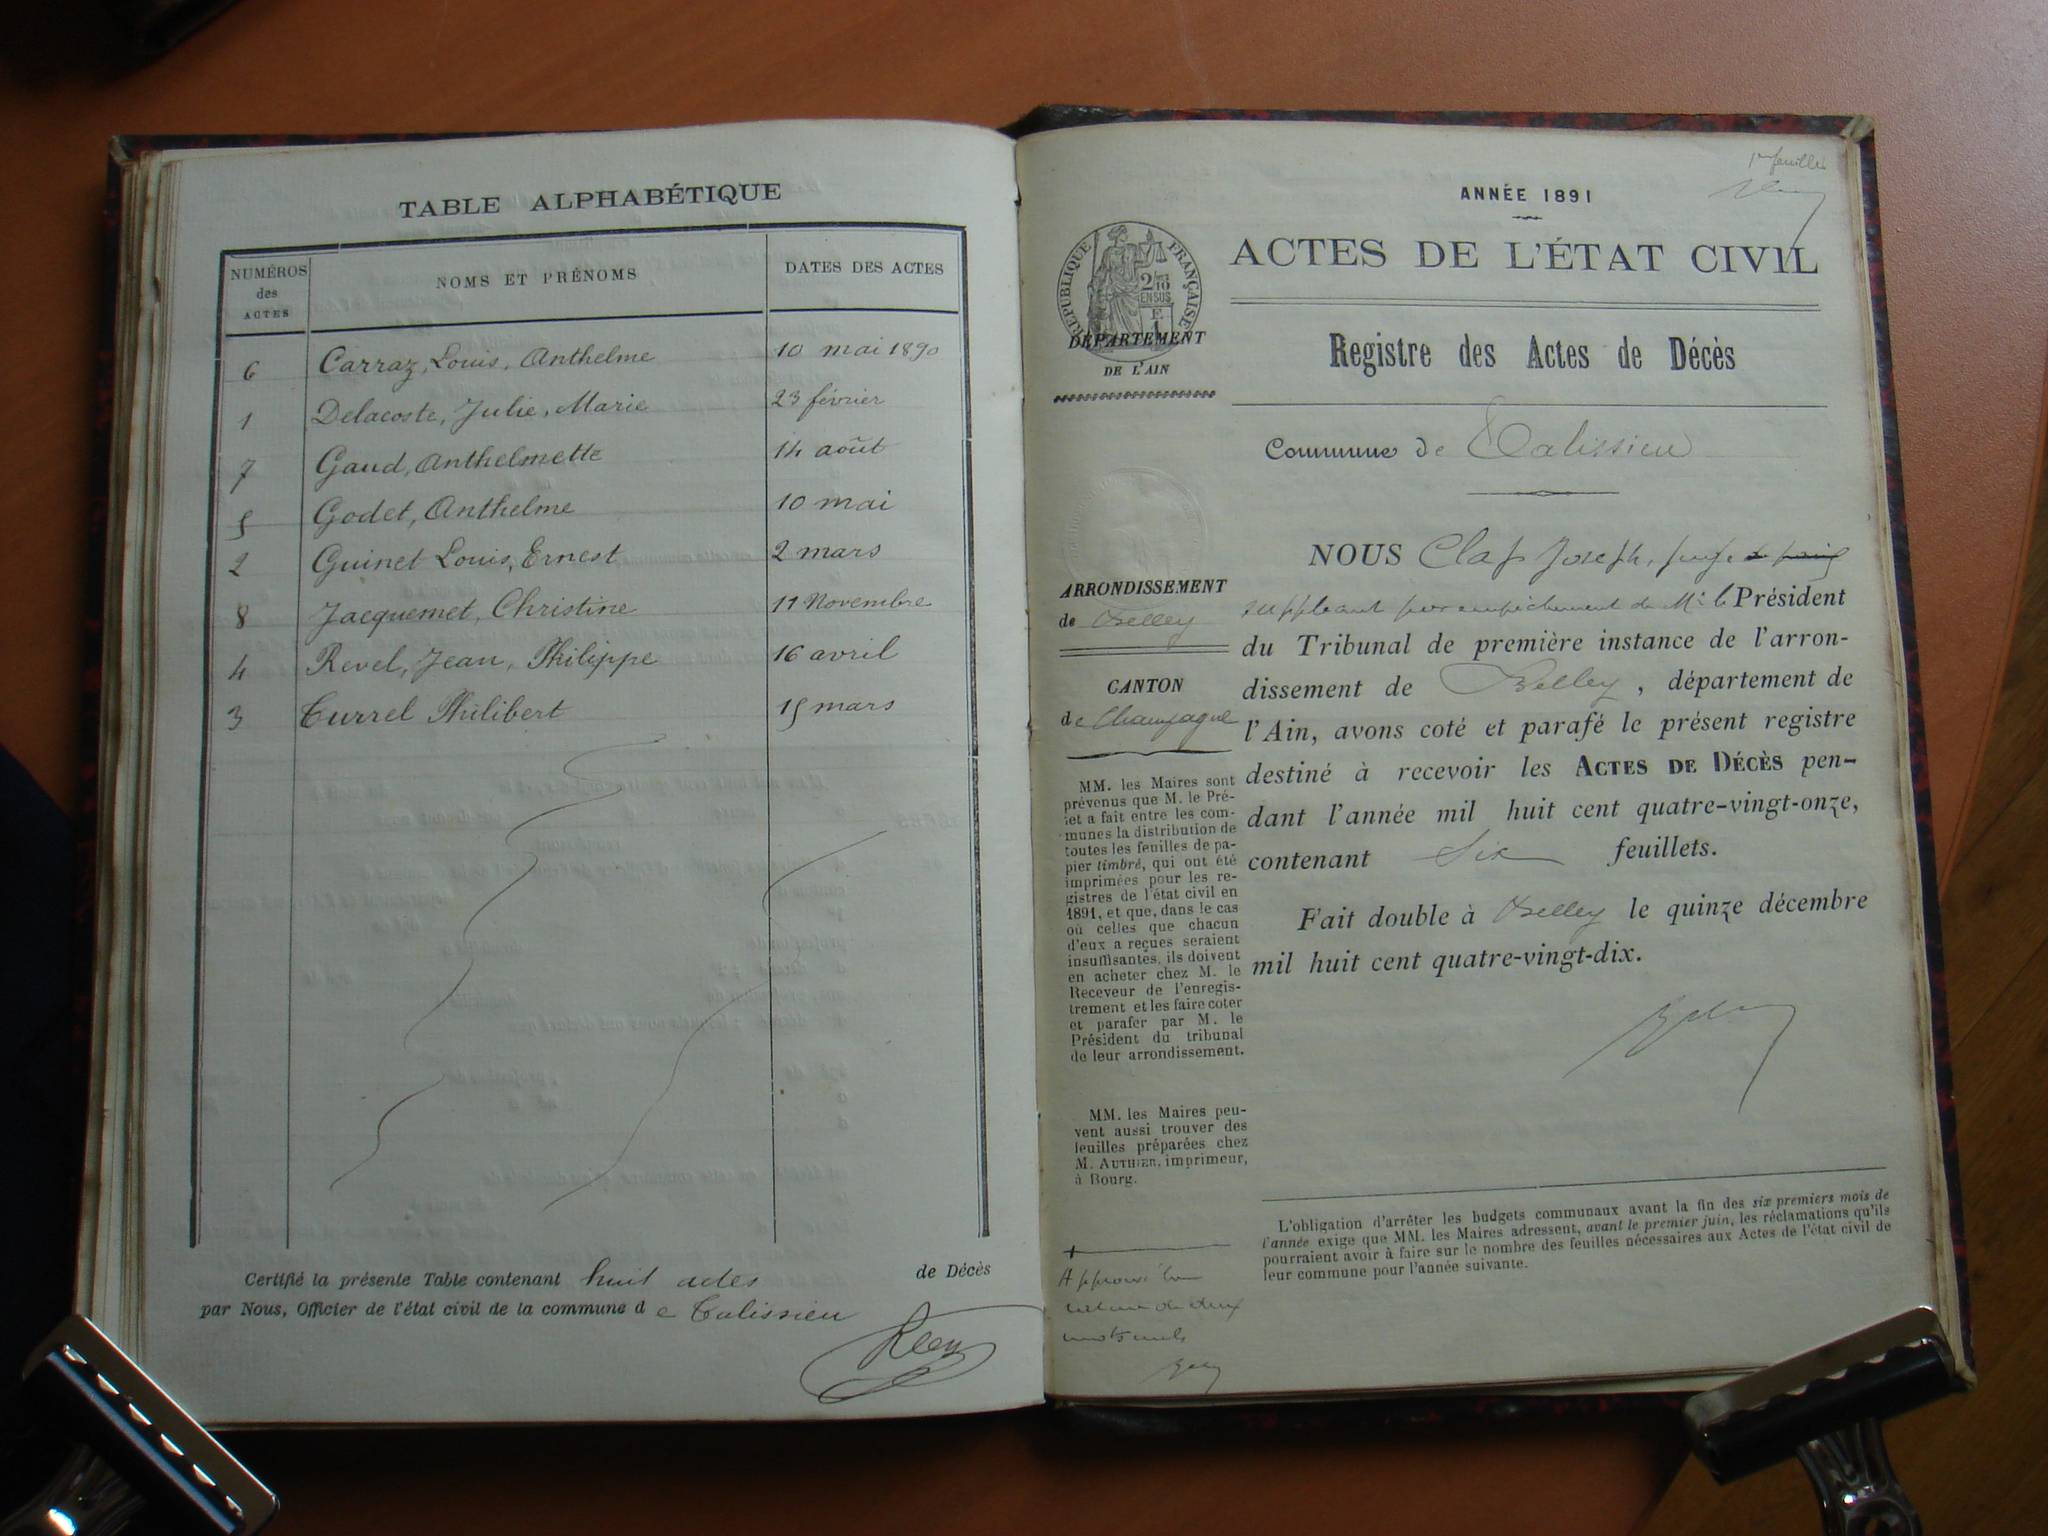 TABLE ALPHABÉTIQUE
NUMÉROS des ACTES
NOMS ET PRÉNOMS
DATES DES ACTES
6 Carraz, Louis, Anthelme 10 mai 1890
1 Delacoste, Julie, Marie 23 février
7 Gaud, Anthelmette 14 août
5 Godet, Anthelme 10 mai
2 Guinet Louis, Ernest 2 mars
8 Jacquemet, Christine 11 Novembre
4 Revel, Jean, Philippe 16 avril
3 Turrel Philibert 15 mars
Certifié la présente Table contenant huit actes de Décès
par Nous, Officier de l'état civil de la commune de Talissieu
1er feuillet
ANNÉE 1891
ACTES DE L'ÉTAT CIVIL
Registre des Actes de Décès
Commune de Talissieu
RÉPUBLIQUE FRANÇAISE
2/10 EN SUS
E
DÉPARTEMENT
DE L'AIN
ARRONDISSEMENT
de Belley
CANTON
de Champagne
MM. les Maires sont
prévenus que M. le Pré-
fet a fait entre les com-
munes la distribution de
toutes les feuilles de pa-
pier timbré, qui ont été
imprimées pour les re-
gistres de l'état civil en
1891, et que, dans le cas
où celles que chacun
d'eux a reçues seraient
insuffisantes, ils doivent
en acheter chez M. le
Receveur de l'enregis-
trement et les faire coter
et parafer par M. le
Président du tribunal
de leur arrondissement.
MM. les Maires peu-
vent aussi trouver des
feuilles préparées chez
M. AUTHIER, imprimeur,
à Bourg.
Approuvé
de deux
mots nuls
NOUS Clap Joseph, juge de paix
suppléant par empêchement de Mr. le Président
du Tribunal de première instance de l'arron-
dissement de Belley, département de
l'Ain, avons coté et parafé le présent registre
destiné à recevoir les ACTES DE DÉCÈS pen-
dant l'année mil huit cent quatre-vingt-onze,
contenant Six feuillets.
Fait double à Belley le quinze décembre
mil huit cent quatre-vingt-dix.
L'obligation d'arrêter les budgets communaux avant la fin des six premiers mois de
l'année exige que MM. les Maires adressent, avant le premier juin, les réclamations qu'ils
pourraient avoir à faire sur le nombre des feuilles nécessaires aux Actes de l'état civil de
leur commune pour l'année suivante.